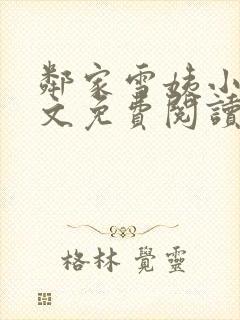 鄰家雪姨小
文免費閱讀
格林 覺靈